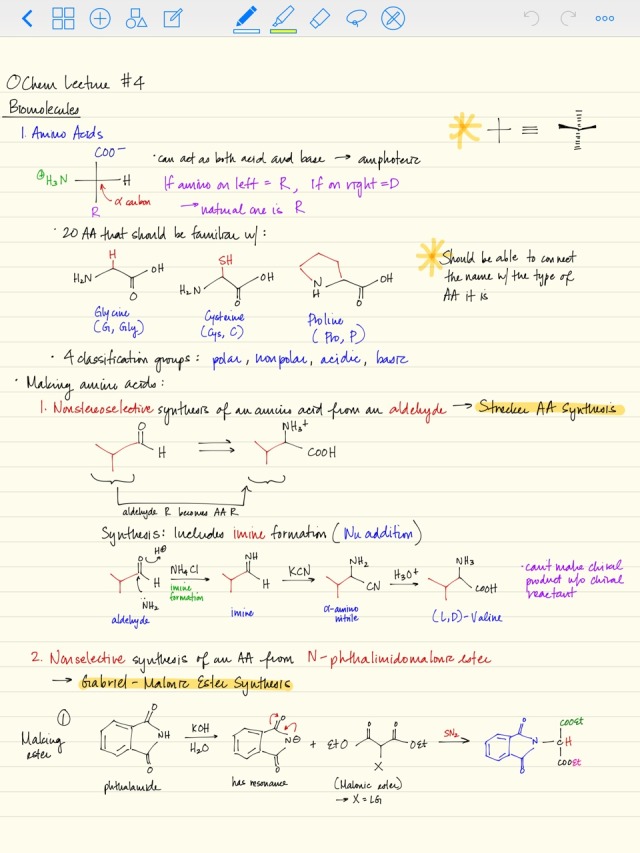 OChem Lecture #4
Biomolecules
1. Amino Acids
COO⁻
⊕H₃N
H
R
α carbon
· can act as both acid and base → amphoteric
If amino on left = R, if on right = D
→ natural one is R
≡
· 20 AA that should be familiar w/:
H
H₂N
OH
O
Glycine
(G, Gly)
SH
H₂N
OH
O
Cysteine
(Cys, C)
N
H
OH
O
Proline
(Pro, P)
Should be able to connect
the name w/ the type of
AA it is
· 4 classification groups: polar, nonpolar, acidic, basic
· Making amino acids:
1. Nonstereoselective synthesis of an amino acid from an aldehyde → Strecker AA Synthesis
O
H
NH₃⁺
COOH
aldehyde R becomes AA R
Synthesis: Includes imine formation (Nu addition)
H⊕
O
H
NH₂
aldehyde
NH₄Cl
imine
formation
NH
H
imine
KCN
NH₂
CN
α-amino
nitrile
H₃O⁺
NH₃
COOH
(L,D)-Valine
· can't make chiral
product w/o chiral
reactant
2. Nonselective synthesis of an AA from N-phthalimidomalonic ester
→ Gabriel-Malonic Ester Synthesis
①
Making
ester
O
NH
O
phthalamide
KOH
H₂O
O
N⊖
O
has resonance
+
EtO
O
O
OEt
X
(Malonic ester)
→ X = LG
SN₂
O
N
O
COOEt
C
H
COOEt